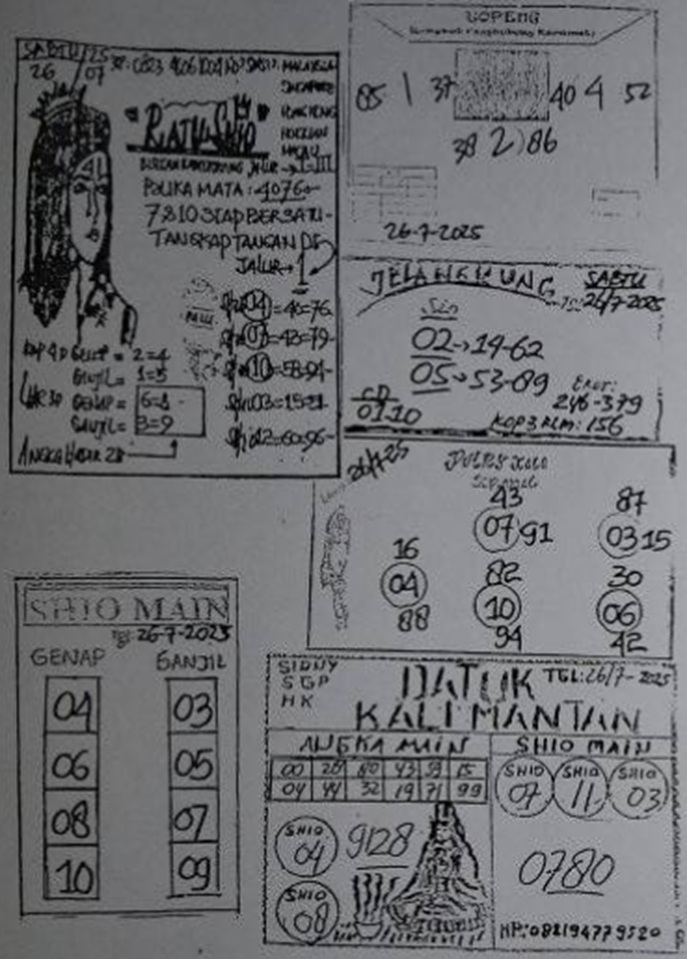 SABTU/25
26 07
MALAYSIA
SINGAPORE
HONGKONG
MACAU
RATU SHIO
JALUR → I-III
POLIKA MATA: 4076
7810 SIAP BERSATU-
TANGKAP TANGAN DI
JALUR → 1
Shio 04 = 40=76
Shio 07 = 43=79-
Shio 10 = 58=94-
Shio 03=15=21-
Shio 12=60=96-
KOP 4D GENAP = 2=4
GANJIL = 1=5
GENAP = 6=8
GANJIL = 3=9
ANGKA 2D
GOPENG
85 1 37 40 4 52
38 2) 86
26-7-2025
JELANGKUNG SABTU
26/7-2025
02→14-62
05→53-89
CD Ekor:
01.10 246-379
KOP 3 KLM: 156
26/7 25
43 87
07 91 03 15
16
04 82 30
88 10 06
94 42
SHIO MAIN
Tgl 26-7-2025
GENAP GANJIL
04 03
06 05
08 07
10 09
SIDNY
SGP
HK
DATUK TGL: 26/7-2025
KALIMANTAN
ANGKA MAIN SHIO MAIN
00 26 80 43 59 15
04 44 32 19 71 99
SHIO 07 SHIO 11 SHIO 03
SHIO 04 9128
SHIO 08
0780
HP: 082194779520